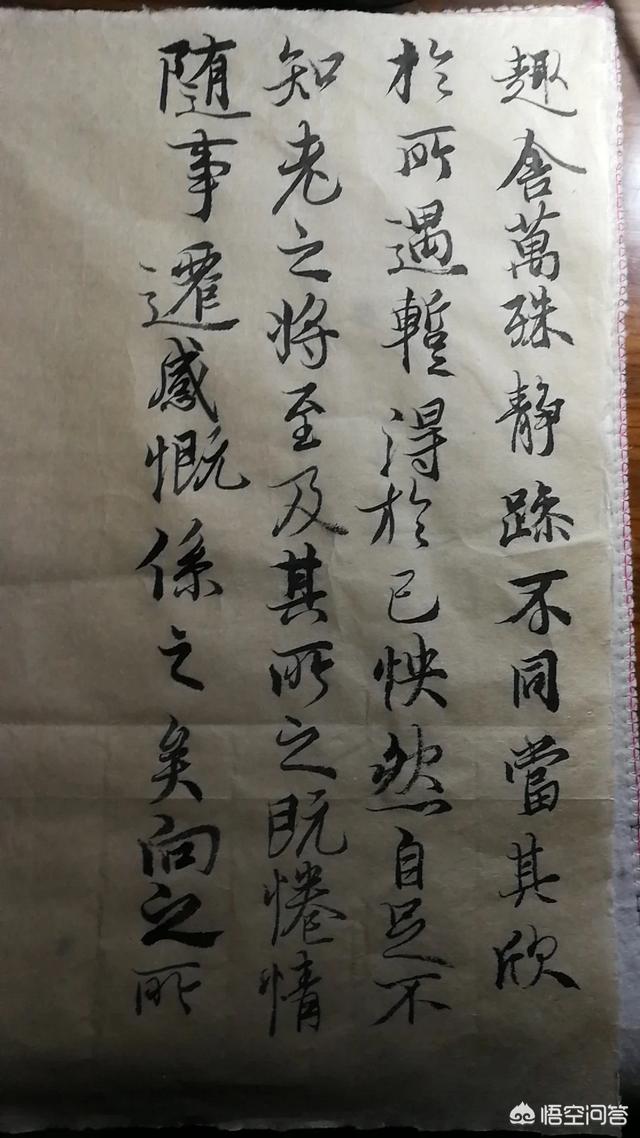 趣舍萬殊静躁不同當其欣
於所遇暫得於己怏然自足不
知老之将至及其所之既惓情
随事遷感慨係之矣向之所
悟空问答